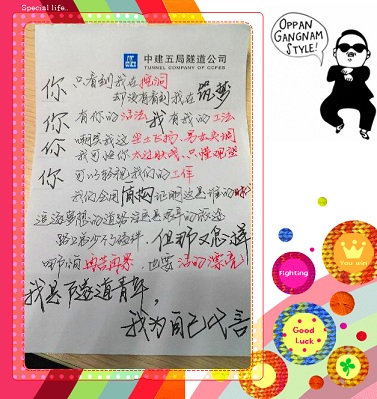 Special life..
OPPAN
GANGNAM
STYLE!
中建五局隧道公司
TUNNEL COMPANY OF CCFEB
你只看到我在
却没有看到我在筑梦
你有你的活法 我有我的工法
你嘲笑我这尘土飞扬,男女失调
我可怜你太过肤浅,只懂观望
你可以轻视我们的工作
我们会用质量证明这是谁的时代
追逐梦想的道路注定是艰辛的旅途
路上总少不了磕绊,但那又怎样
哪怕再苦再累,也要活的漂亮
我是隧道青年,
我为自己代言
Fighting
You win
Good
Luck